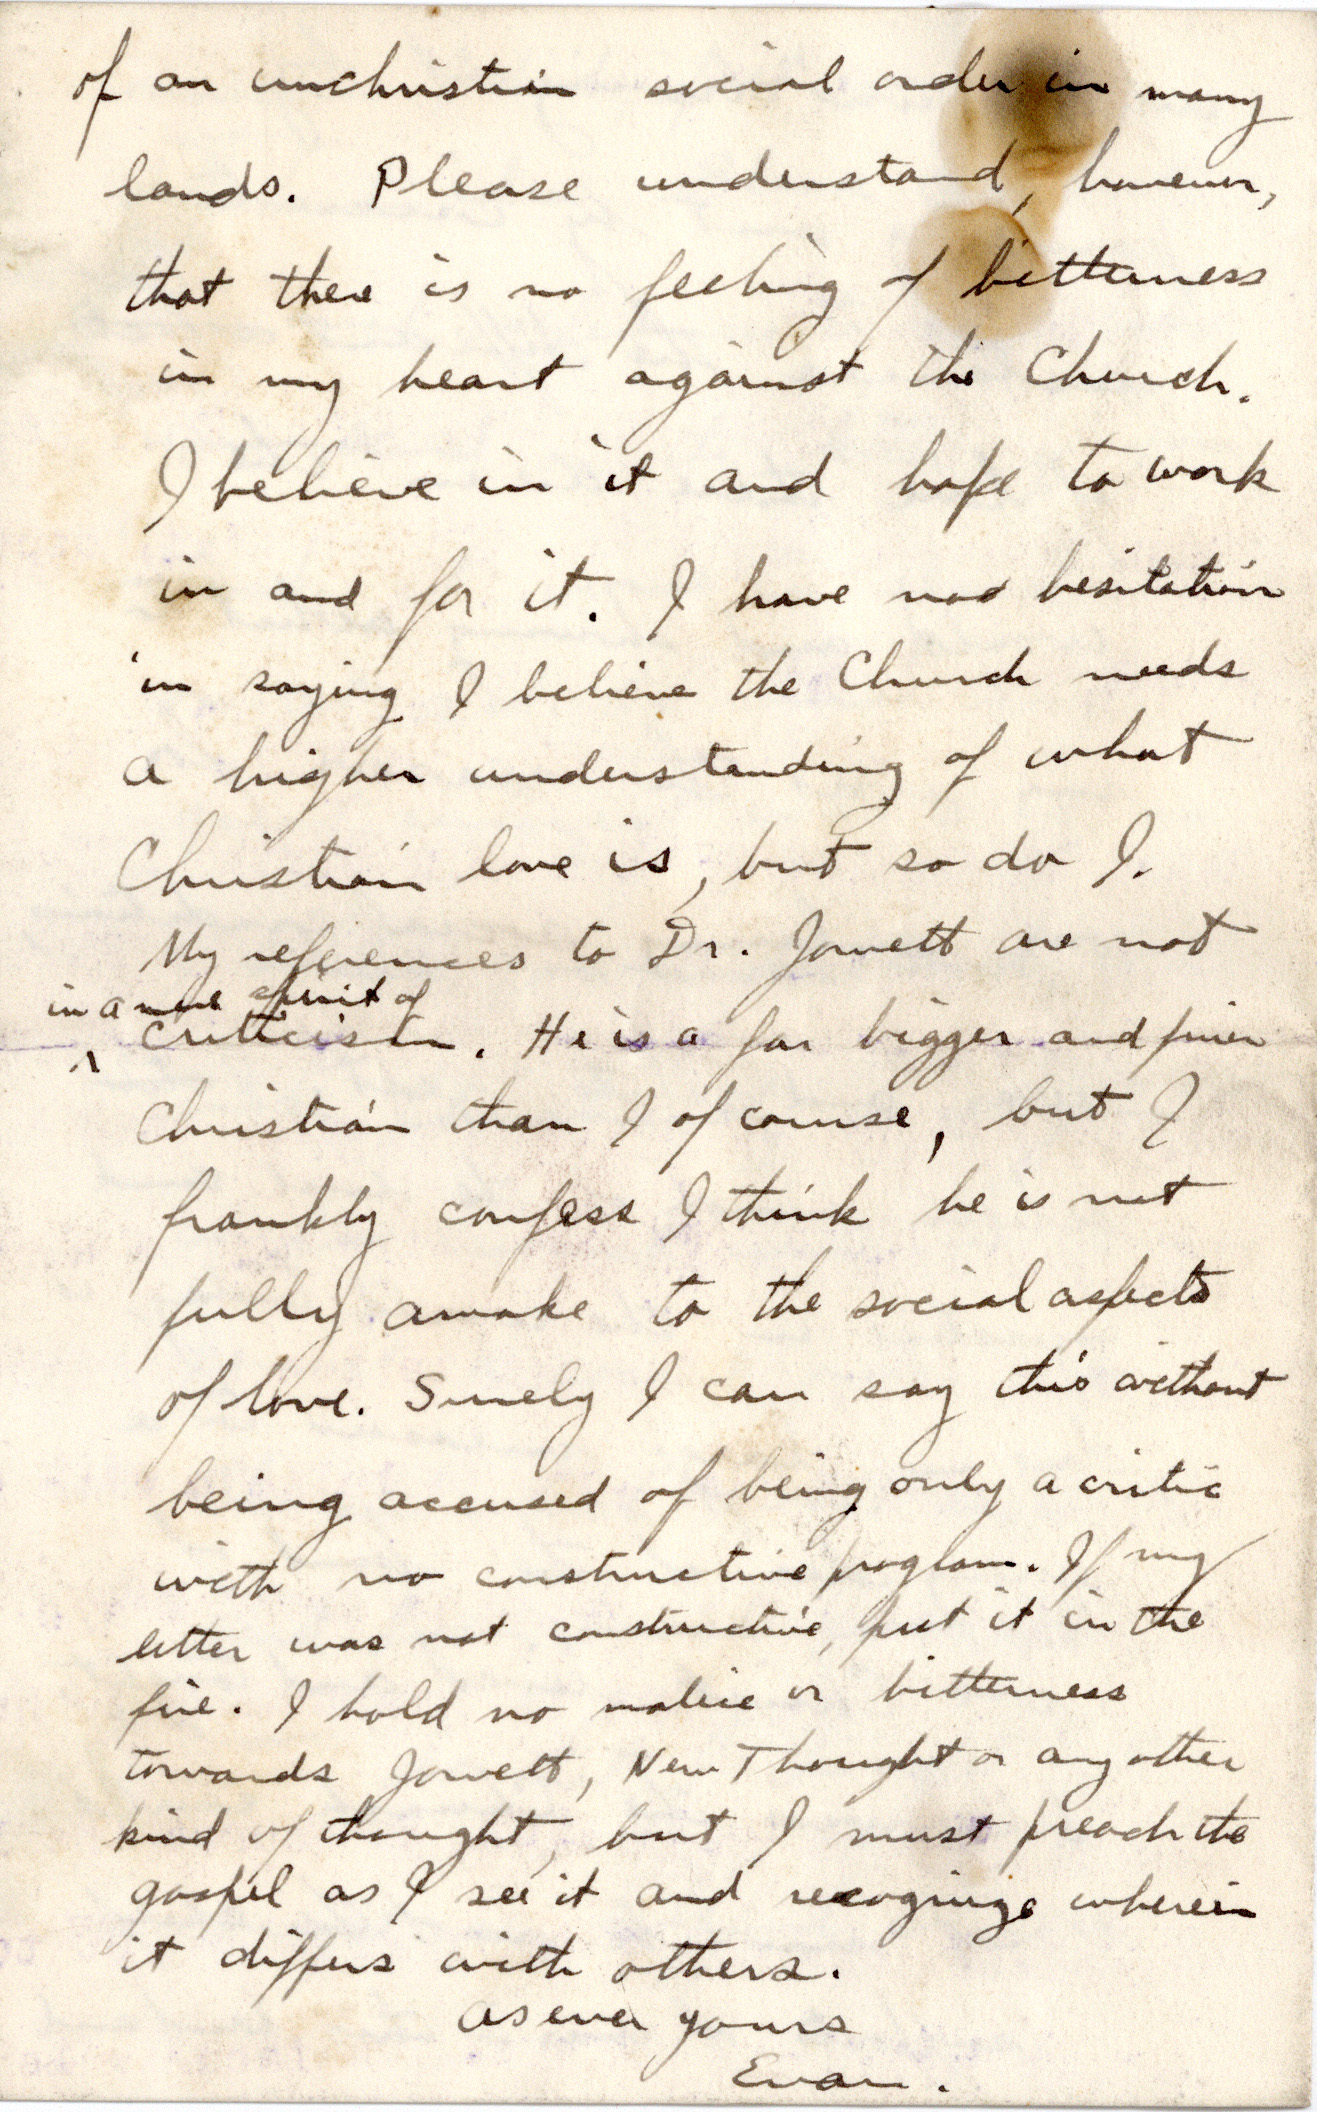 of an unchristian social order in many
lands. Please understand, however,
that there is no feeling of bitterness
in my heart against the Church.
I believe in it and hope to work
in and for it. I have no hesitation
in saying I believe the Church needs
a higher understanding of what
Christian love is, but so do I.
My references to Dr. Jowett are not
in a mere spirit of
criticism. He is a far bigger and finer
Christian than I of course, but I
frankly confess I think he is not
fully awake to the social aspects
of love. Surely I can say this without
being accused of being only a critic
with no constructive program. If my
letter was not constructive, put it in the
fire. I hold no malice or bitterness
towards Jowett, New Thought or any other
kind of thought, but I must preach the
gospel as I see it and recognize wherein
it differs with others.
As ever yours
Evan.